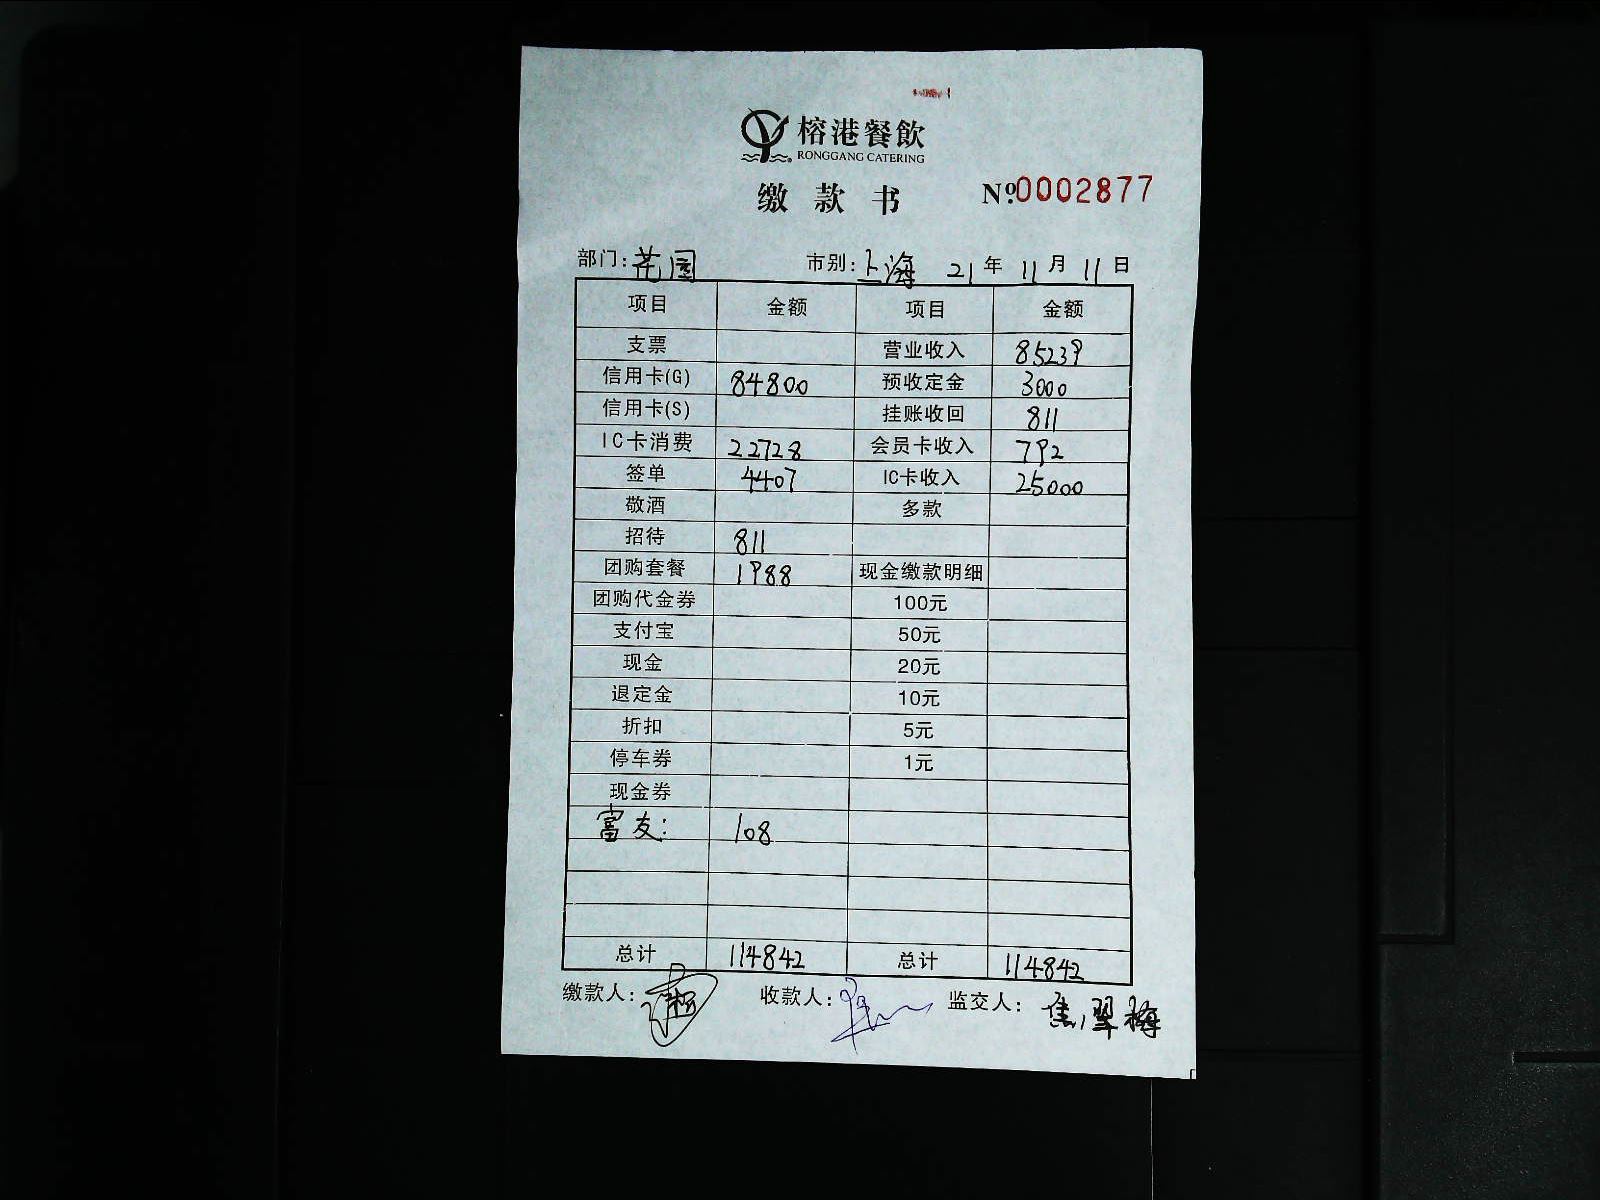 榕港餐飲
RONGGANG CATERING
缴款书 №0002877
部门:花园 市别:上海 21年11月11日
项目 金额 项目 金额
支票 营业收入 85239
信用卡(G) 84800 预收定金 3000
信用卡(S) 挂账收回 811
IC卡消费 22728 会员卡收入 792
签单 4407 IC卡收入 25000
敬酒 多款
招待 811
团购套餐 1988 现金缴款明细
团购代金券 100元
支付宝 50元
现金 20元
退定金 10元
折扣 5元
停车券 1元
现金券
富友: 108
总计 114842 总计 114842
缴款人: 收款人: 监交人: 焦翠梅